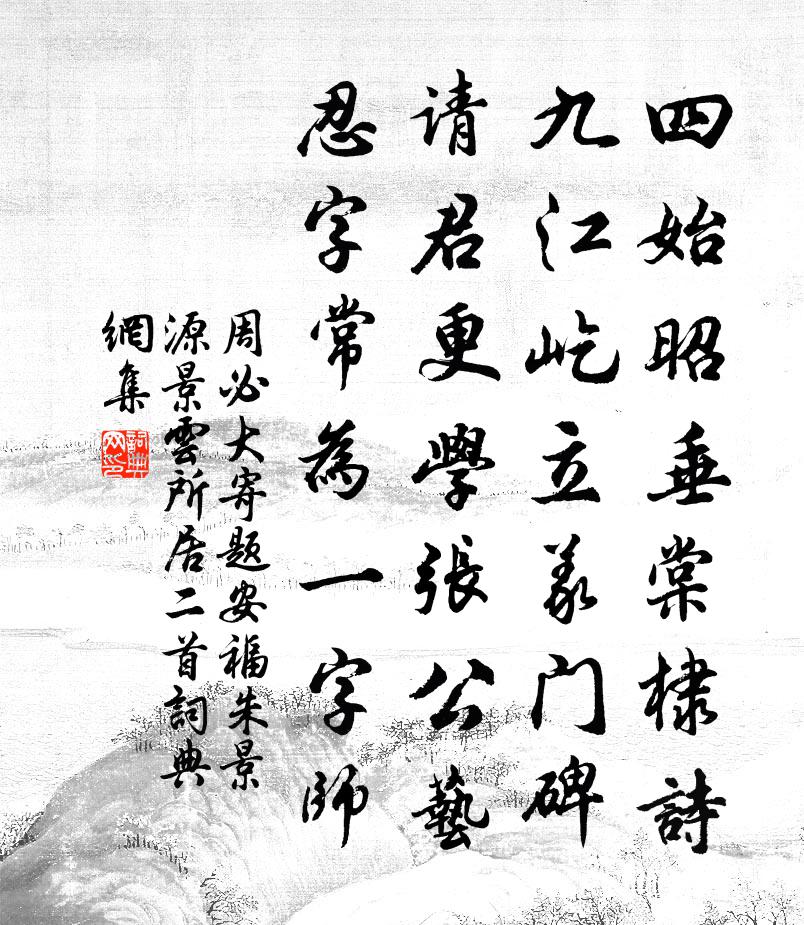 四始昭垂棠棣詩
九江屹立義门碑
请君更學張公藝
忍字常為一字師
周必大寄题安福朱景
源景雲所居二首詞典
網集
詞典
网印